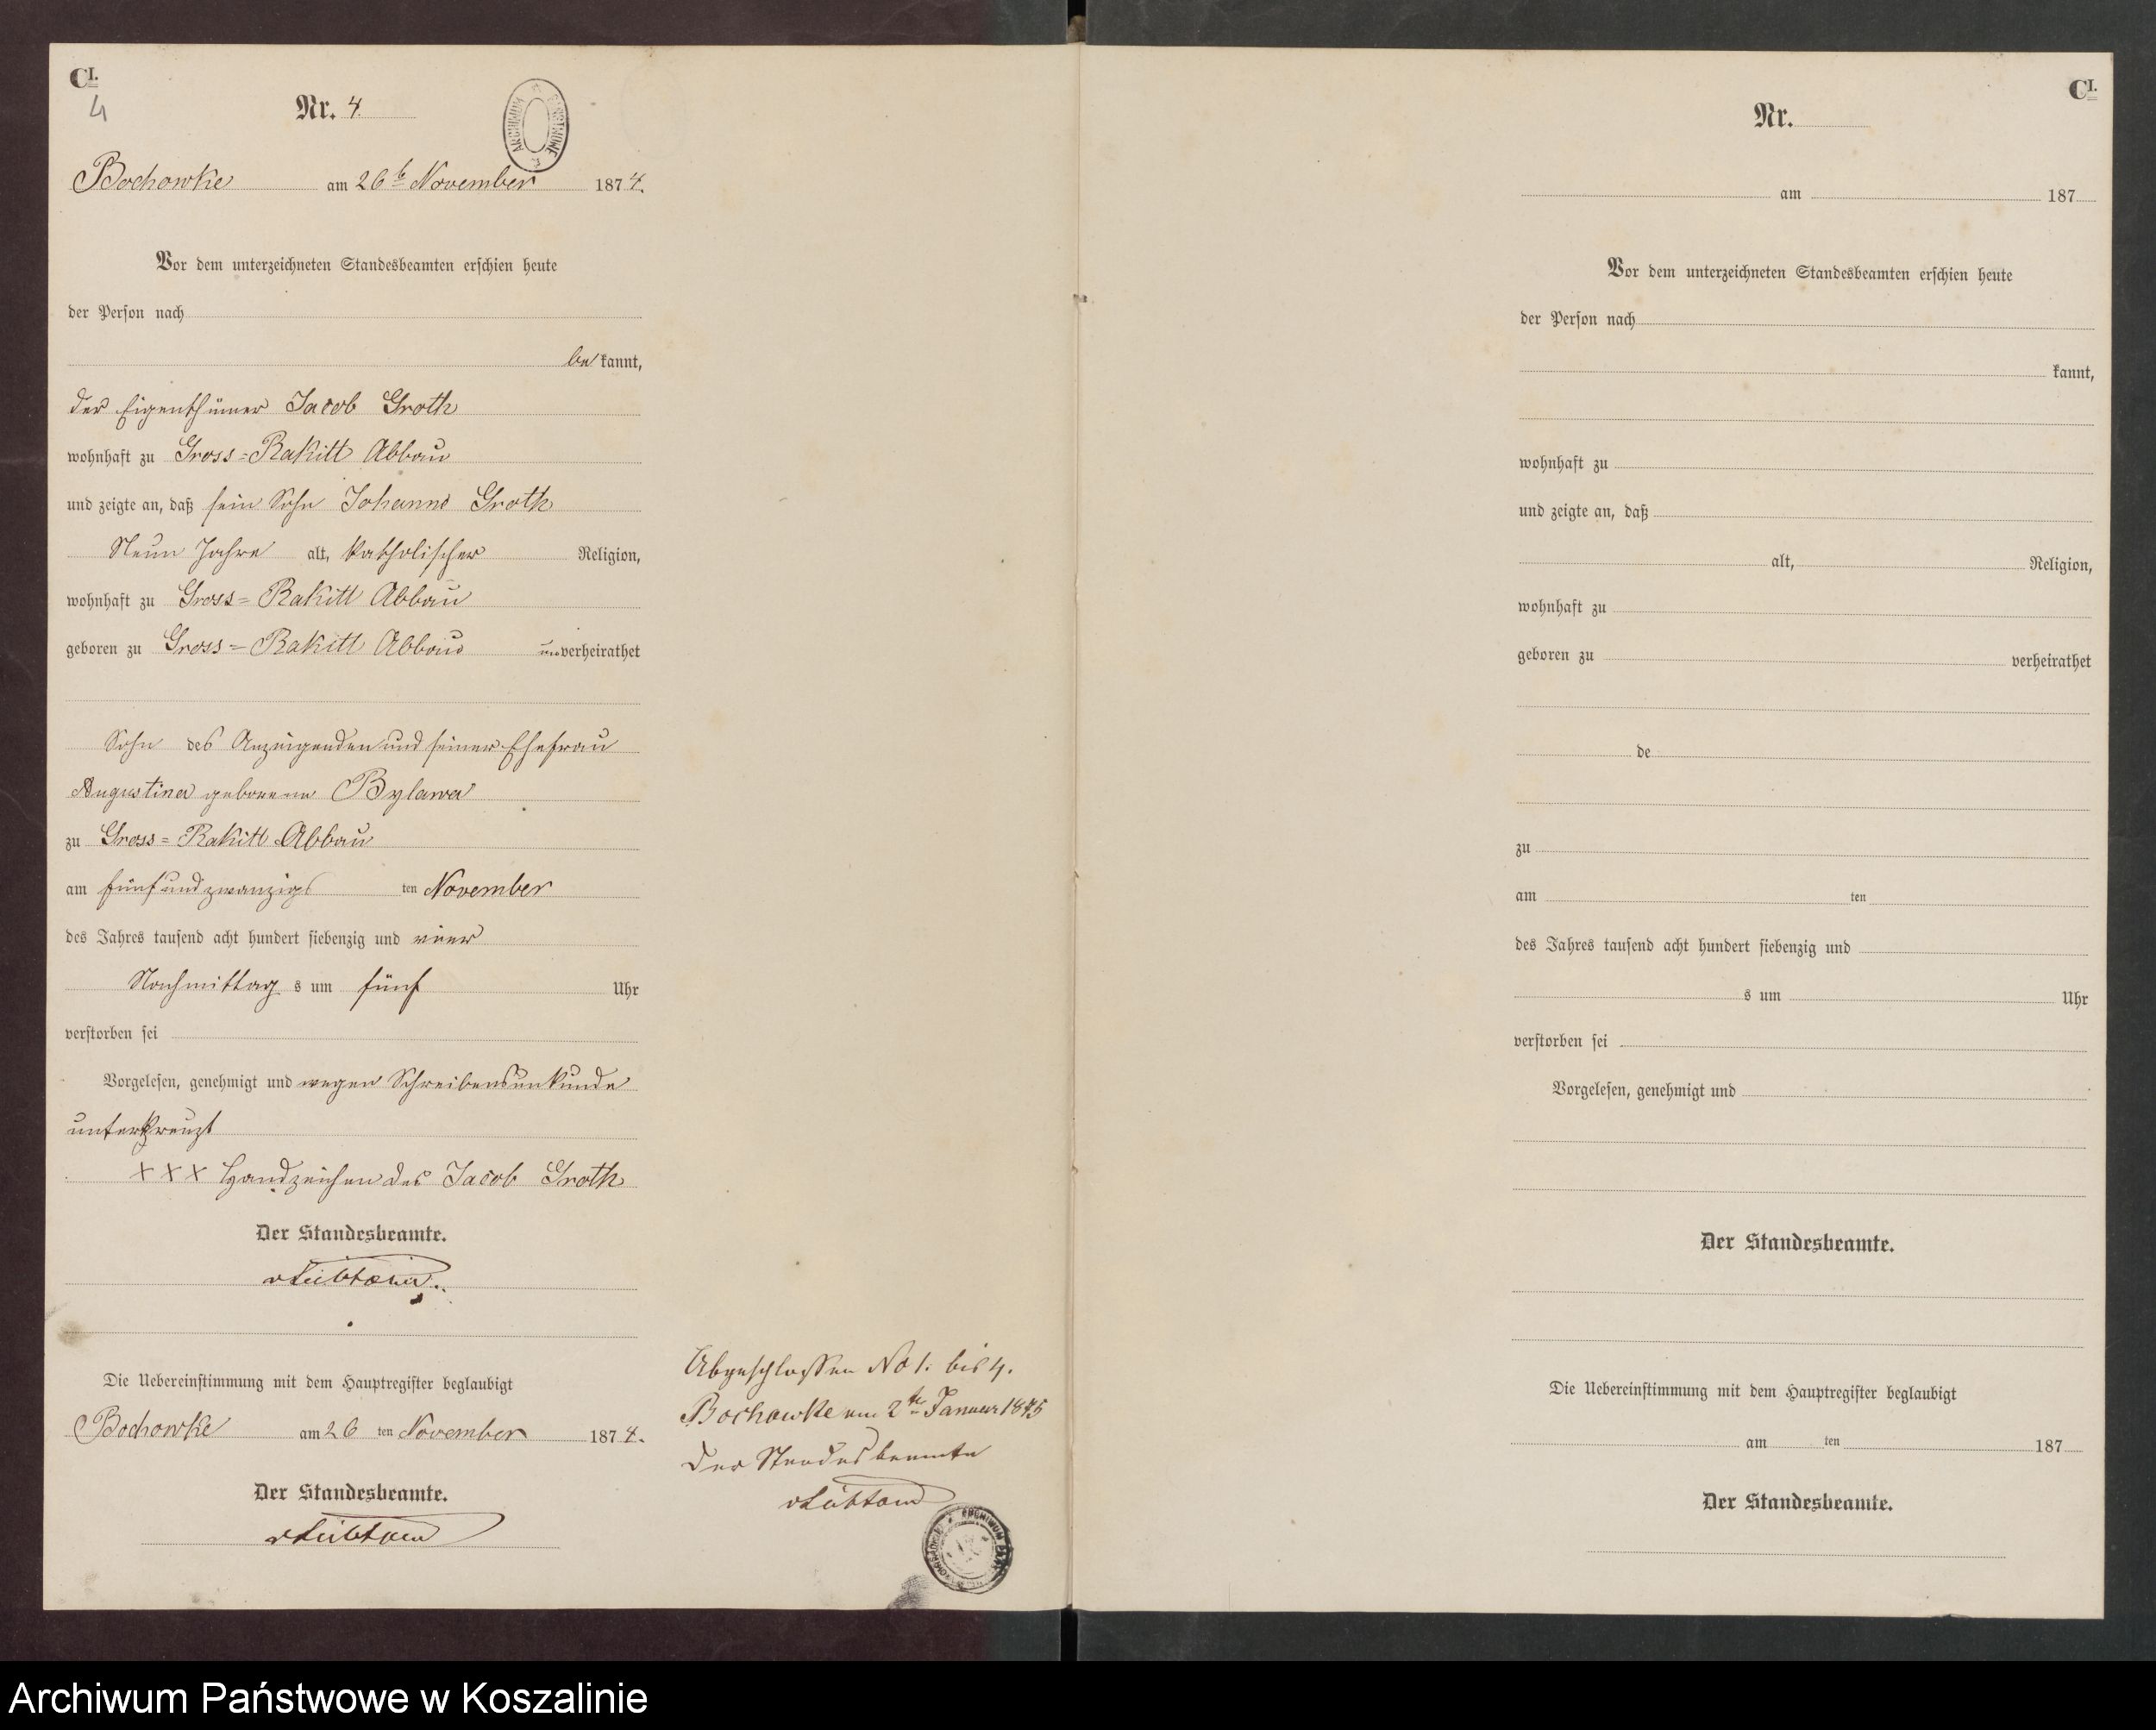 C I.
4
Nr. 4.
Bochowke am 26t November 1874.
Vor dem unterzeichneten Standesbeamten erschien heute
der Person nach
bekannt,
der Eigenthümer Jacob Groth
wohnhaft zu Gross=Rakitt Abbau
und zeigte an, daß sein Sohn Johann Groth
Neun Jahre alt, katholischer Religion,
wohnhaft zu Gross=Rakitt Abbau
geboren zu Gross=Rakitt Abbau unverheirathet
Sohn des Anzeigenden und seiner Ehefrau
Augustina geborene Bylawa
zu Gross=Rakitt Abbau
am fünf und zwanzigs ten November
des Jahres tausend acht hundert siebenzig und vier
Nachmittag s um fünf Uhr
verstorben sei
Vorgelesen, genehmigt und wegen Schreibensunkunde
unterkreuzt
XXX Handzeichen des Jacob Groth
Der Standesbeamte.
Die Uebereinstimmung mit dem Hauptregister beglaubigt
Bochowke am 26 ten November 1874.
Der Standesbeamte.
Abgeschlossen No 1. bis 4.
Bochowke am 2te Januar 1875
Der Standesbeamte
C I.
Nr.
am 187
Vor dem unterzeichneten Standesbeamten erschien heute
der Person nach
kannt,
wohnhaft zu
und zeigte an, daß
alt, Religion,
wohnhaft zu
geboren zu verheirathet
de
zu
am ten
des Jahres tausend acht hundert siebenzig und
s um Uhr
verstorben sei
Vorgelesen, genehmigt und
Der Standesbeamte.
Die Uebereinstimmung mit dem Hauptregister beglaubigt
am ten 187
Der Standesbeamte.
Archiwum Państwowe w Koszalinie